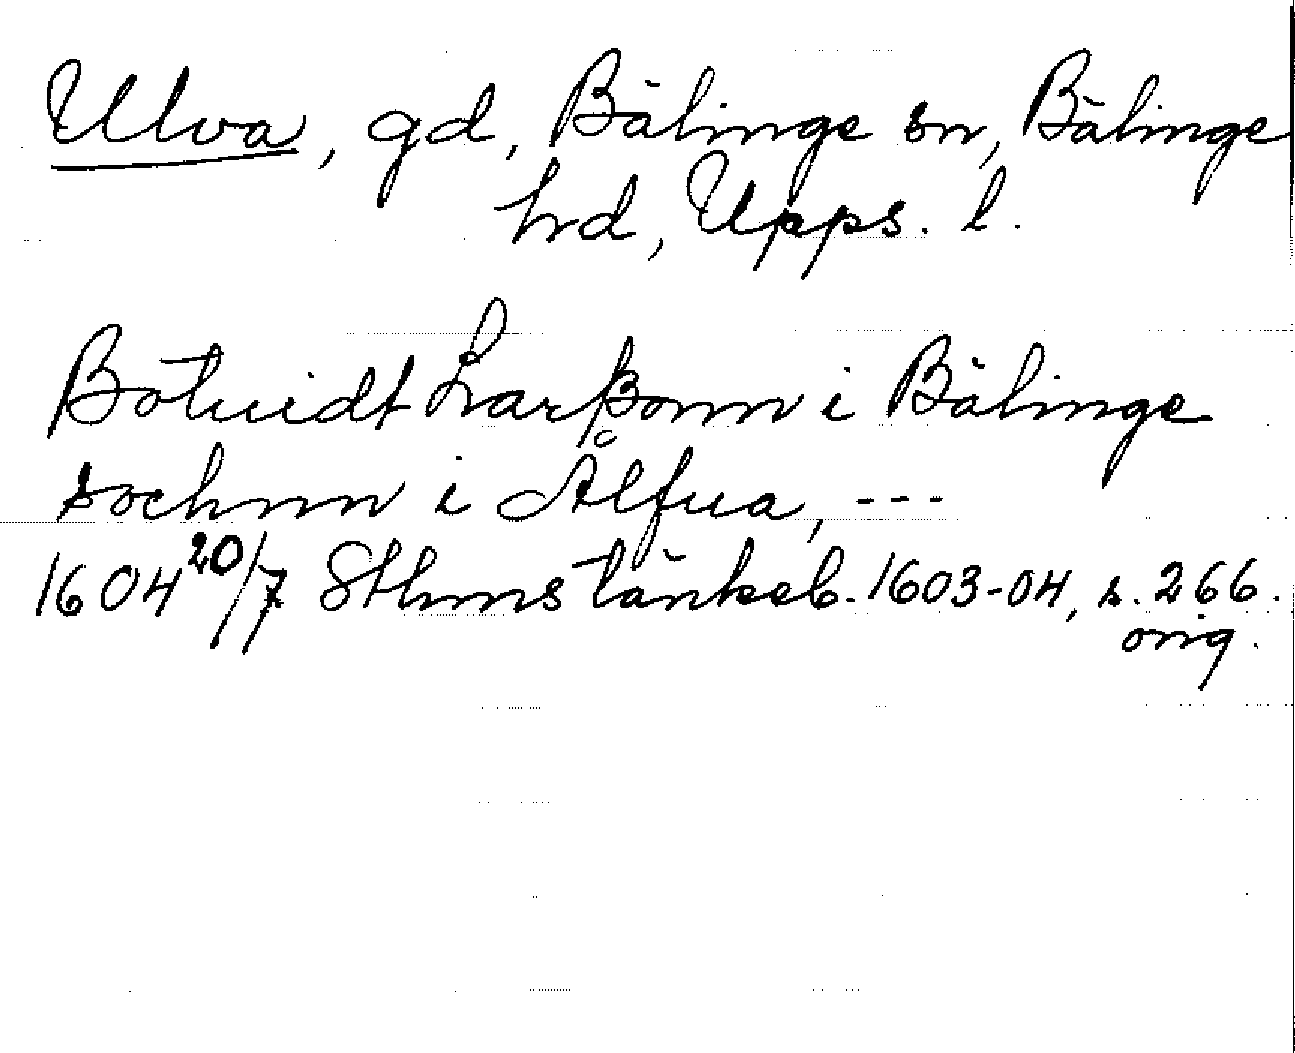 Ulva, gd, Bälinge sn, Bälinge
hrd, Upps. l.
Botuidt Larßonn i Bälinge
sochnn i Ålfua, ---
1604 20/7 Sthms tänkeb. 1603-04, s. 266.
orig.